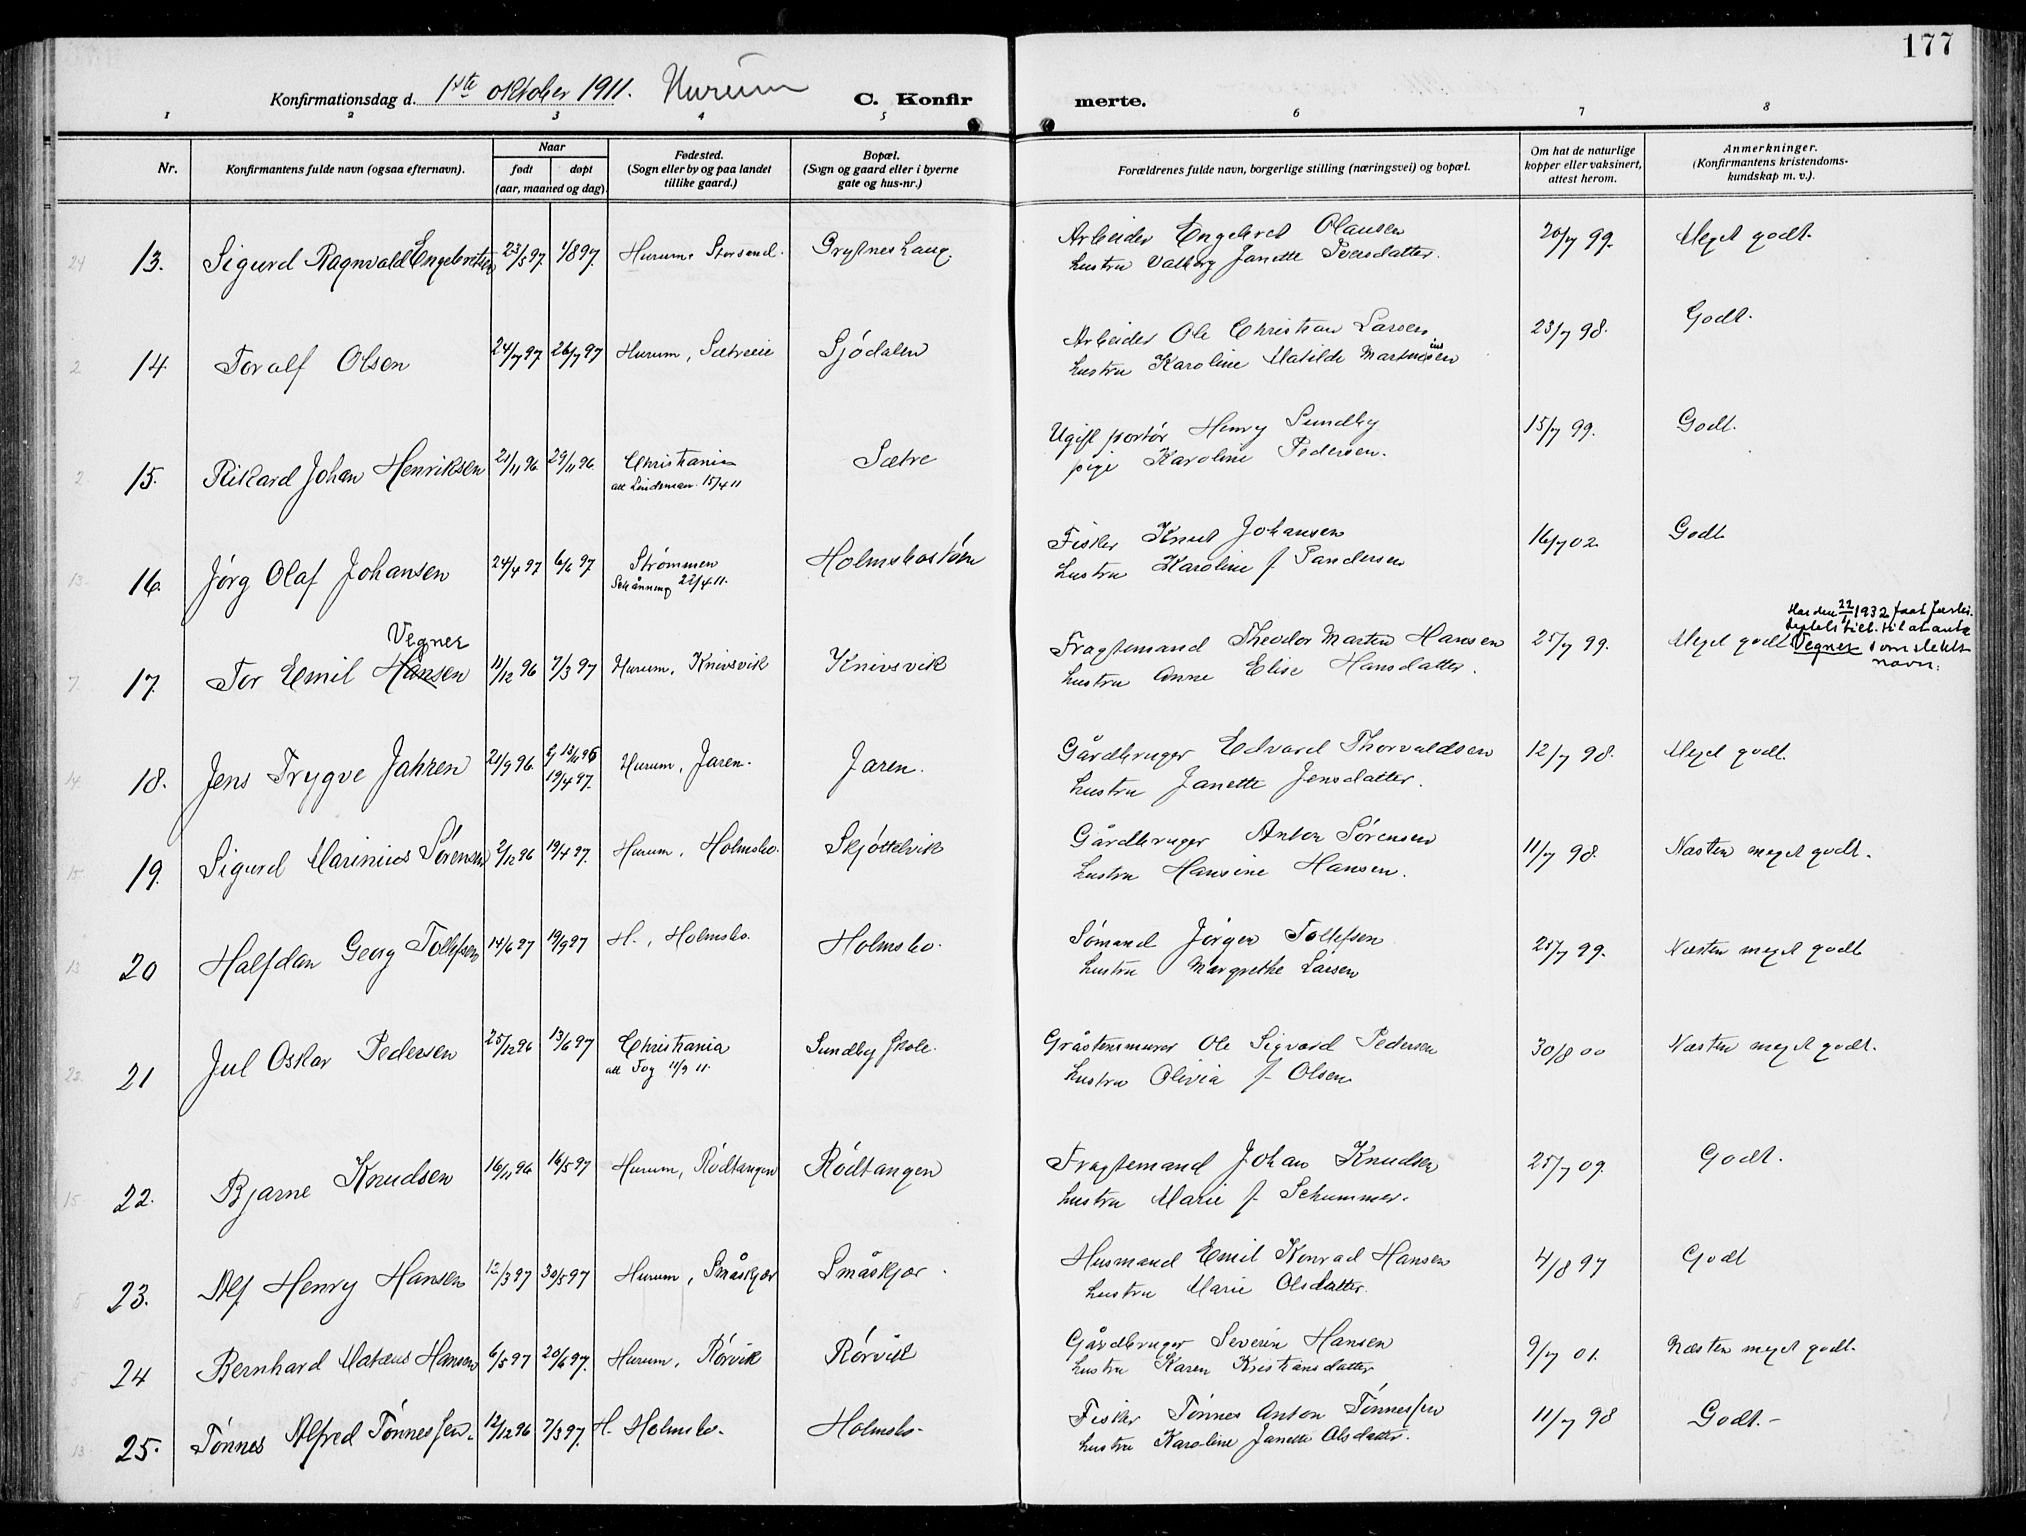 177
Konfirmationsdag d. 1ste oktober 1911. Hurum C. Konfir merte.
1 2 3 4 5 6 7 8
Nr. Konfirmantens fulde navn (ogsaa efternavn). Naar født døpt (aar, maaned og dag). Fødested. (Sogn eller by og paa landet tillike gaard.) Bopæl. (Sogn og gaard eller i byerne gate og hus-nr.) Forældrenes fulde navn, borgerlige stilling (næringsvei) og bopæl. Om hat de naturlige kopper eller vaksinert, attest herom. Anmerkninger. (Konfirmantens kristendomskundskap m. v.).
24 13. Sigurd Ragnvald Engebretsen 23/5 97. 1/8 97. Hurum, Storsand. Grytnes Arbeider Engebret Olausen 20/7 99. Meget godt.
hustru Valborg Janette
2 14. Toralf Olsen 24/7 97 26/7 97 Hurum, Sætreeie Sjødalen Arbeider Ole Christian Larsen 23/7 98. Godt.
hustru Karoline Matilde
2 15. Rikard Johan Henriksen 21/11 96 29/11 96. Christiania Sætre Ugift portør Henry Sundby 15/7 99. Godt.
att Lindeman 15/4 11 pige Karoline Pedersen.
13. 16. Jørg Olaf Johansen 24/4 97 6/6 97. Strømmen Holmsbostøen Fisker Knut Johansen 16/7 02. Godt
Schänning 22/4 11. hustru Karoline f. Sandersen
7 17. Tor Emil Hansen Vegner 11/12 96 7/3 97 Hurum, Knivsvik Knivsvik Fragtemand Theodor Marten Hansen 25/7 99. Meget godt
hustru Anne Elise Hansdatter.
Har den 22/1 1932 faat
til at anta
Vegner som slekts
navn.
14 18. Jens Trygve Jahren 21/9 96 13/11 96 Hurum, Jaren. Jaren. Gårdbruger Edvard Thorvaldsen 12/7 98. Meget godt.
19/4 97. hustru Janette Jensdatter.
15. 19. Sigurd Marinius Sørensen 2/12 96 19/4 97. Hurum, Holmsbo. Skjøttelvik Gårdbruger Anton Sørensen 11/7 98. Næsten meget godt.
hustru Hansine Hansen.
13 20 Halfdan Georg Tollefsen 14/6 97 19/9 97 H., Holmsbo. Holmsbo. Sømand Jørgen Tollefsen 25/7 99. Næsten meget godt
hustru Margrethe Larsen
22. 21 Jul Oskar Pedersen 25/12 96 13/6 97 Christiania Sundby skole. Gråstensmurer Ole Sigvard Pedersen 30/8 00 Næsten meget godt.
att Fog 11/9 11. hustru Olivia f. Olsen
15 22. Bjarne Knudsen 16/11 96 16/5 97 Hurum, Rødtangen Rødtangen Fragtemand Johan Knudsen 25/7 09. Godt.
hustru Marie f. Schummer.
5 23. Alf Henry Hansen 12/3 97 30/5 97 Hurum, Småskjær Småskjær. Husmand Emil Konrad Hansen 4/8 97 Godt
hustru Marie Olsdatter.
5 24 Bernhard Matæus Hansen 6/5 97 20/6 97. Hurum, Rørvik Rørvik Gårdbruger Severin Hansen 9/7 01. Næsten meget godt.
hustru Karen Kristiansdatter
13. 25. Tønnes Alfred Tønnessen. 12/12 96 7/3 97. H. Holmsbo. Holmsbo. Fisker Tønnes Anton Tønnessen 11/7 98 Godt.
hustru Karoline Janette Olsdatter.